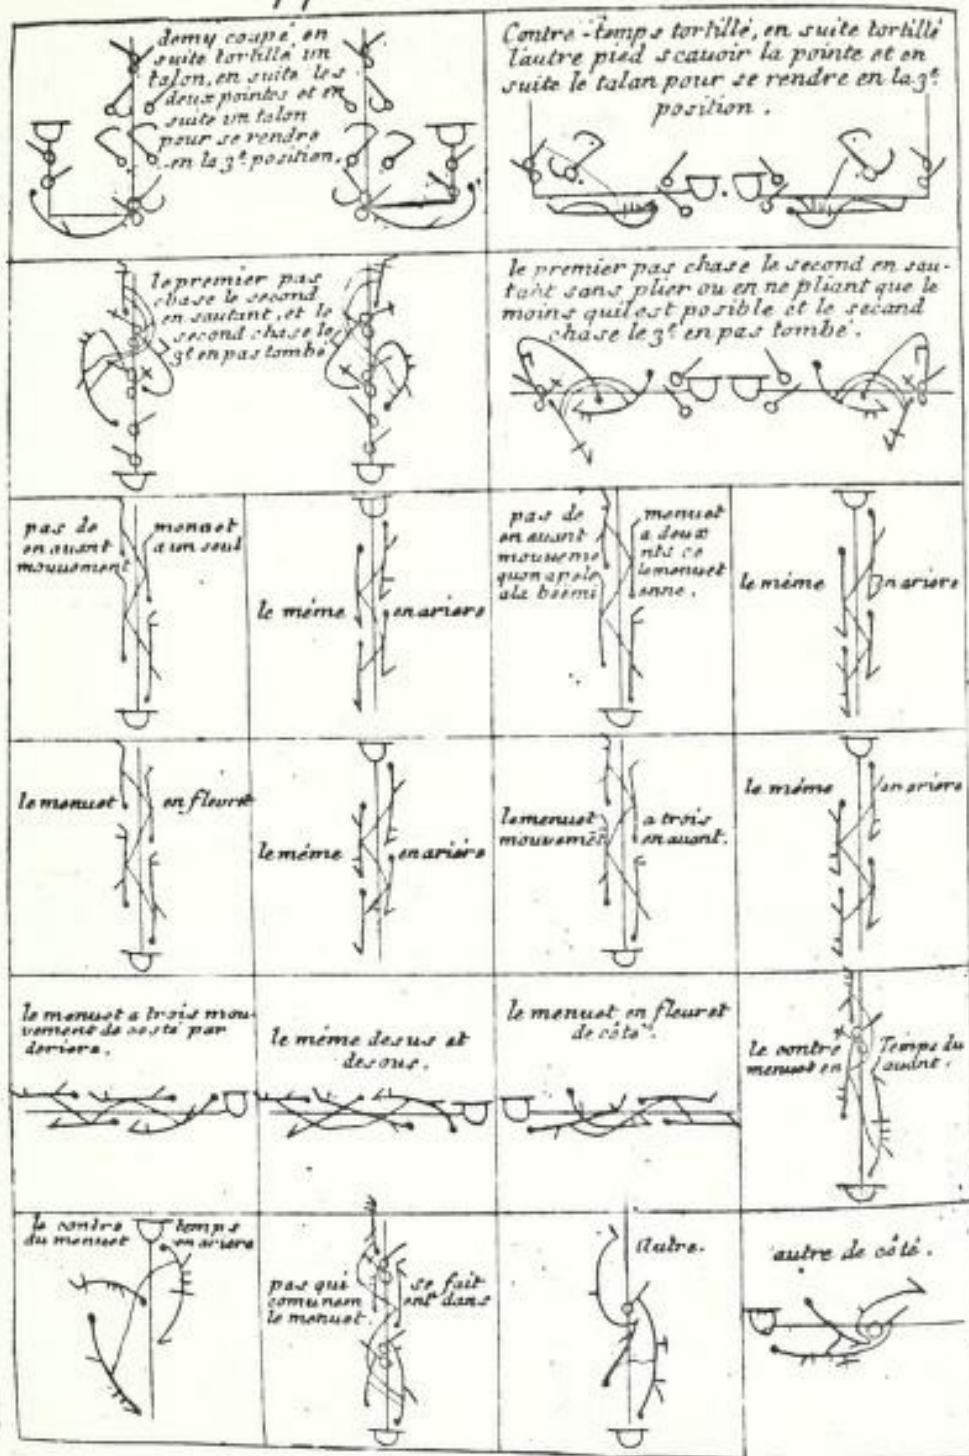 demy coupé en
suite tortillé un
talon, en suite les
deux pointes et en
suite un talon
pour se rendre
en la 3e position.
Contre-temps tortillé, en suite tortillé
l'autre pied scauoir la pointe et en
suite le talon pour se rendre en la 3e
position.
le premier pas
chase le second
en sautant, et le
second chase le
3e en pas tombé
le premier pas chase le second en sau-
tant sans plier ou en ne pliant que le
moins quil est posible et le second
chase le 3e en pas tombé.
pas de menuet
en auant a un seul
mouuement
le méme en ariere
pas de menuet
en auant a deux
mouuements ce
quon apele le menuet
a la boemienne.
le méme en ariere
le menuet en fleuret
le méme en ariére
le menuet a trois
mouvemẽs en auant.
le méme en ariere
le menuet a trois mou-
vement de costé par
deriere.
le méme desus et
desous.
le menuet en fleuret
de côté.
le contre Temps du
menuet en auant.
le contre temps
du menuet en ariere
pas qui se fait
comunement dans
le menuet.
Autre.
autre de côté.